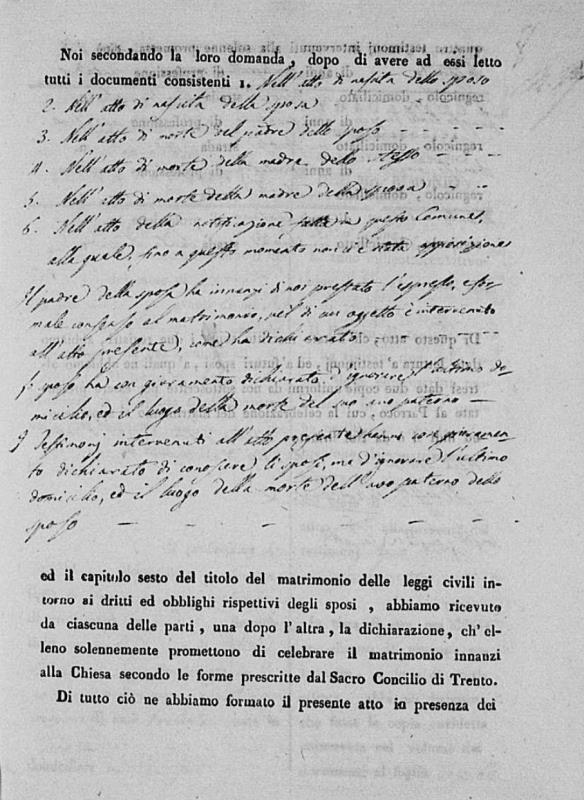 Noi secondando la loro domanda, dopo di avere ad essi letto
tutti i documenti consistenti 1. Nell'atto di nascita dello sposo
2. Nell'atto di nascita della sposa
3. Nell'atto di morte del padre dello sposo — — — —
4. Nell'atto di morte della madre dello stesso — — —
5. Nell'atto di morte della madre della sposa — —
6. Nell'atto della notificazione fatta in questo Comune,
alla quale, fino a questo momento non vi è stata opposizione
Il padre della sposa ha innanzi di noi prestato l'espresso, e for
male consenso al matrimonio, nel di cui oggetto è intervenuto
all'atto presente, come ha dichiarato
Lo sposo ha con giuramento dichiarato ignorare l'ultimo do-
micilio, ed il luogo della morte del suo avo paterno —
I Testimonj intervenuti all'atto presente hanno con giuramen
to dichiarato di conoscere li sposi, ma d'ignorare l'ultimo
domicilio, ed il luogo della morte dell'avo paterno dello
sposo — — — — — —
ed il capitolo sesto del titolo del matrimonio delle leggi civili in-
torno ai dritti ed obblighi rispettivi degli sposi, abbiamo ricevuto
da ciascuna delle parti, una dopo l'altra, la dichiarazione, ch'el-
leno solennemente promettono di celebrare il matrimonio innanzi
alla Chiesa secondo le forme prescritte dal Sacro Concilio di Trento.
Di tutto ciò ne abbiamo formato il presente atto in presenza dei